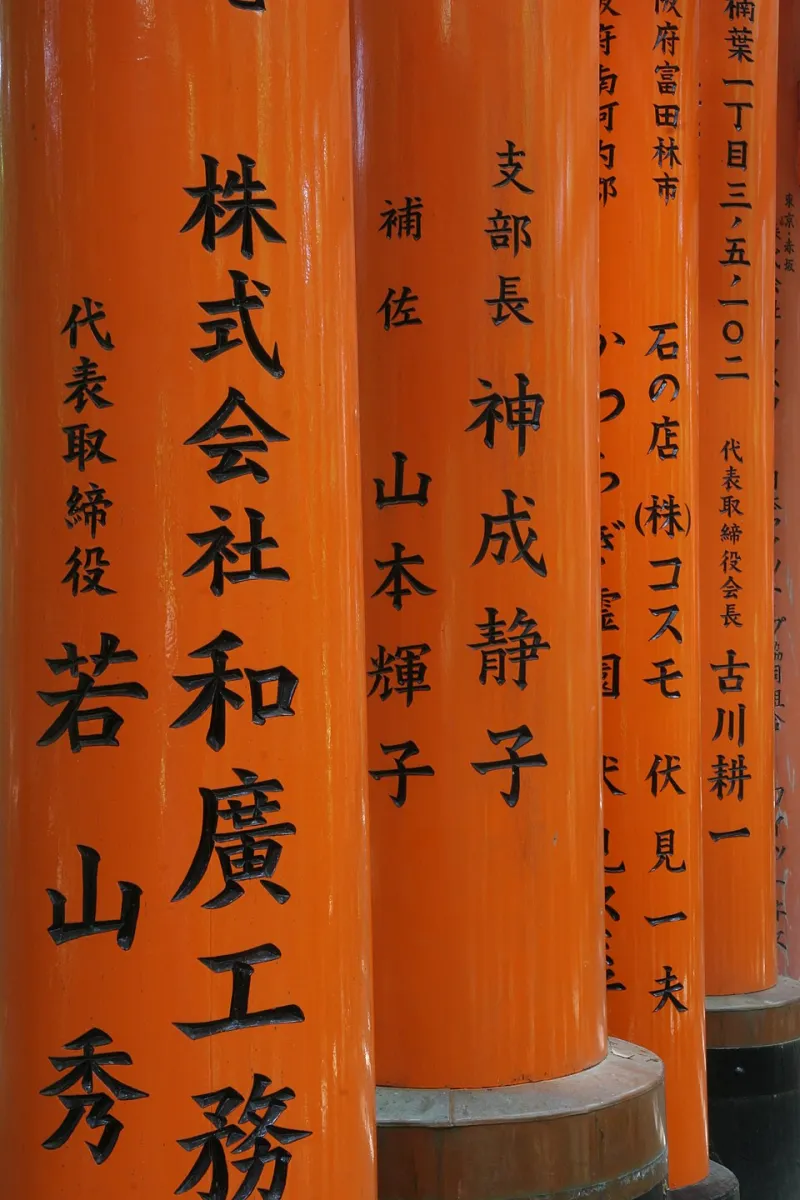 東京・赤坂
楠葉一丁目三、五、一〇二 代表取締役会長 古川耕一
阪府富田林市 石の店 (株)コスモ 伏見一夫
府南河内郡 かつらぎ霊園 伏見
支部長 神成静子
補佐 山本輝子
株式会社和廣工務
代表取締役 若山秀